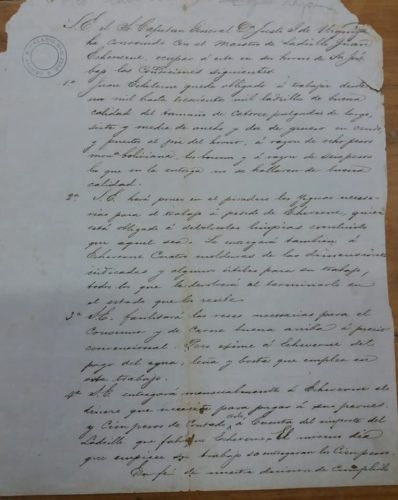 S.E. el Sr Capitan General Dn Justo J de Urquiza
ha convenido con el Maestro de Ladrillo Juan
Echeverne, ocupar á este en su horno de Sn José
bajo las Condiciones siguientes
1a Juan Echeverne queda obligado á trabajar desde
una mil hasta trescientos mil ladrillos de buena
calidad del tamaño de Catorce pulgadas de largo,
siete y media de ancho y dos de grueso en crudo,
y puestos al pie del horno, á razon de ocho pesos
mona boliviana los buenos y á razon de seis pesos
lo que en la entrega no se hallaren de buena
calidad.
2a S.E. hará poner en el pisadero las Yeguas necesa-
rias para el trabajo á pedido de Echeverne, quien
está obligado á debolverlas limpias concluido
que aquel sea. Le entregará tambien á
Echeverne Cuatro moldes de las dimensiones
indicadas y algunos útiles para su trabajo,
todo lo que le deberá al terminarlo en
el estado que lo reciba.
3a S.E. facilitará las reses necesarias para el
Consumo y de Carne buena arriba á precio
convencional. Pero exime á Echeverne del
pago del agua, leña y bosta que emplee en
este trabajo.
4a S.E. entregará mensualmente á Echeverne el
dinero que necesite para pagar á sus peones
y Cien pesos de Contado á cuenta del importe del
Ladrillo que Echeverne El mismo dia
que empiece su trabajo se entregaran los Cien pesos.
En fé de nuestra devisa de Cumplirlo